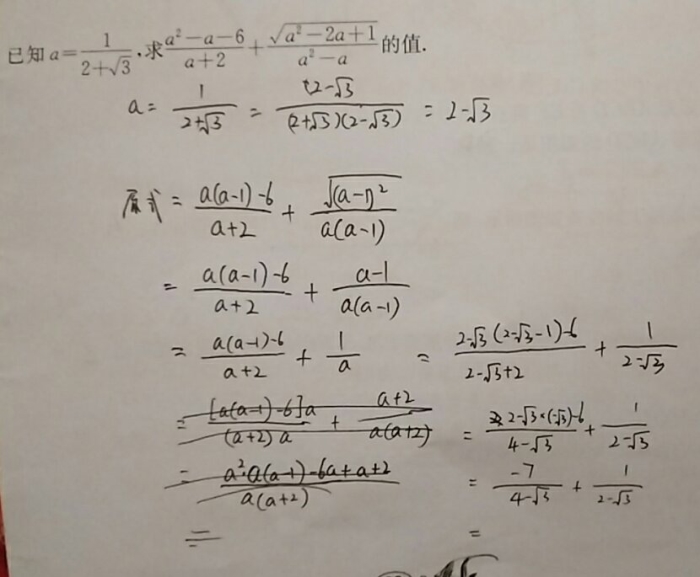 已知 a=1/(2+√3),求(a²-a-6)/(a+2)+√(a²-2a+1)/(a²-a)的值.
a = 1/(2+√3) = (2-√3)/((2+√3)(2-√3)) = 2-√3
原式 = (a(a-1)-6)/(a+2) + √((a-1)²)/(a(a-1))
= (a(a-1)-6)/(a+2) + (a-1)/(a(a-1))
= (a(a-1)-6)/(a+2) + 1/a = (2-√3(2-√3-1)-6)/(2-√3+2) + 1/(2-√3)
= [a(a-1)-6]a/((a+2)a) + (a+2)/(a(a+2)) = (2-√3×(-√3)-6)/(4-√3) + 1/(2-√3)
= (a²·a(a-1)-6a+a+2)/(a(a+2)) = -7/(4-√3) + 1/(2-√3)
= =